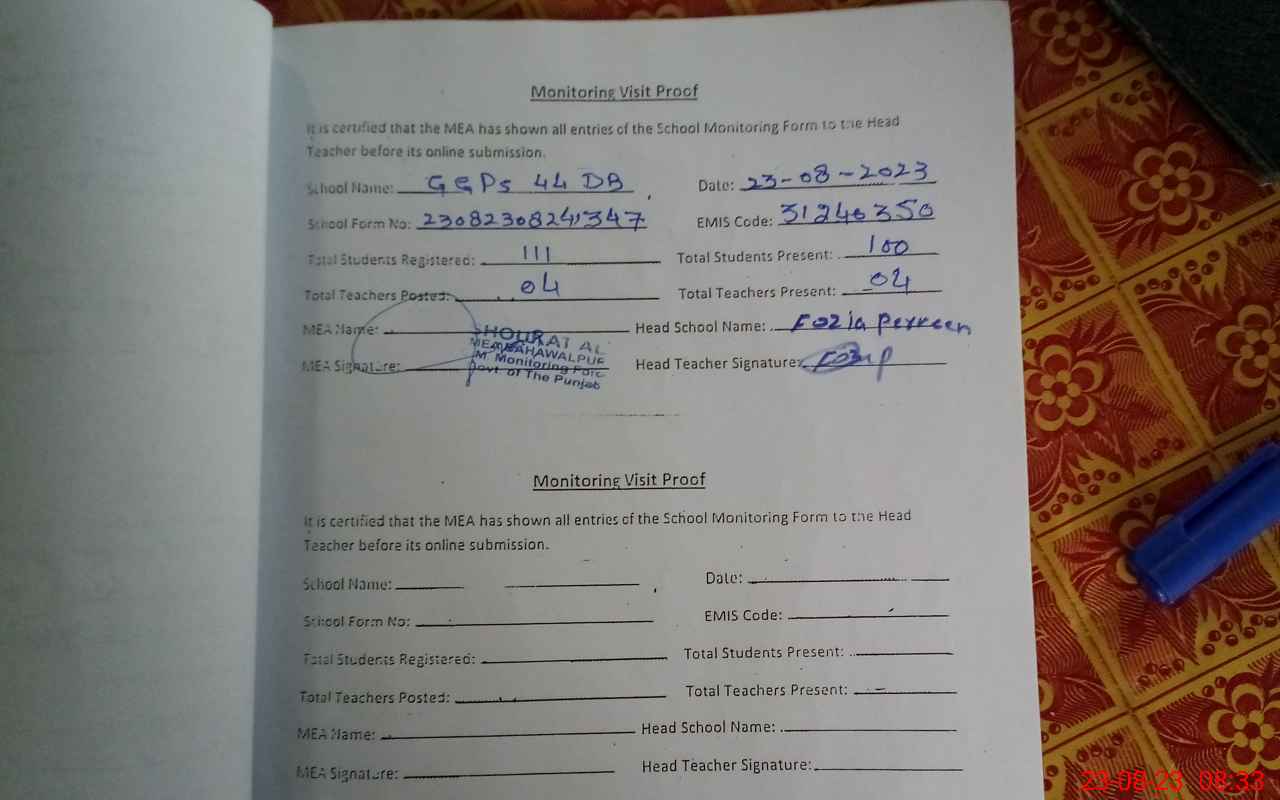 Monitoring Visit Proof
It is certified that the MEA has shown all entries of the School Monitoring Form to the Head
Teacher before its online submission.
School Name: GGPS 44 DB Date: 23-08-2023
School Form No: EMIS Code: 31240350
Total Students Registered: 111 Total Students Present: 100
Total Teachers Posted: 04 Total Teachers Present: 04
MEA Name: Head School Name: Fozia Perveen
SHOUKAT AL
MEA BAHAWALPUR
MEA Signature: Head Teacher Signature:
M. Monitoring Forc
Govt. of The Punjab
Monitoring Visit Proof
It is certified that the MEA has shown all entries of the School Monitoring Form to the Head
Teacher before its online submission.
School Name: Date:
School Form No: EMIS Code:
Total Students Registered: Total Students Present:
Total Teachers Posted: Total Teachers Present:
MEA Name: Head School Name:
MEA Signature: Head Teacher Signature:
23-08-23 08:33